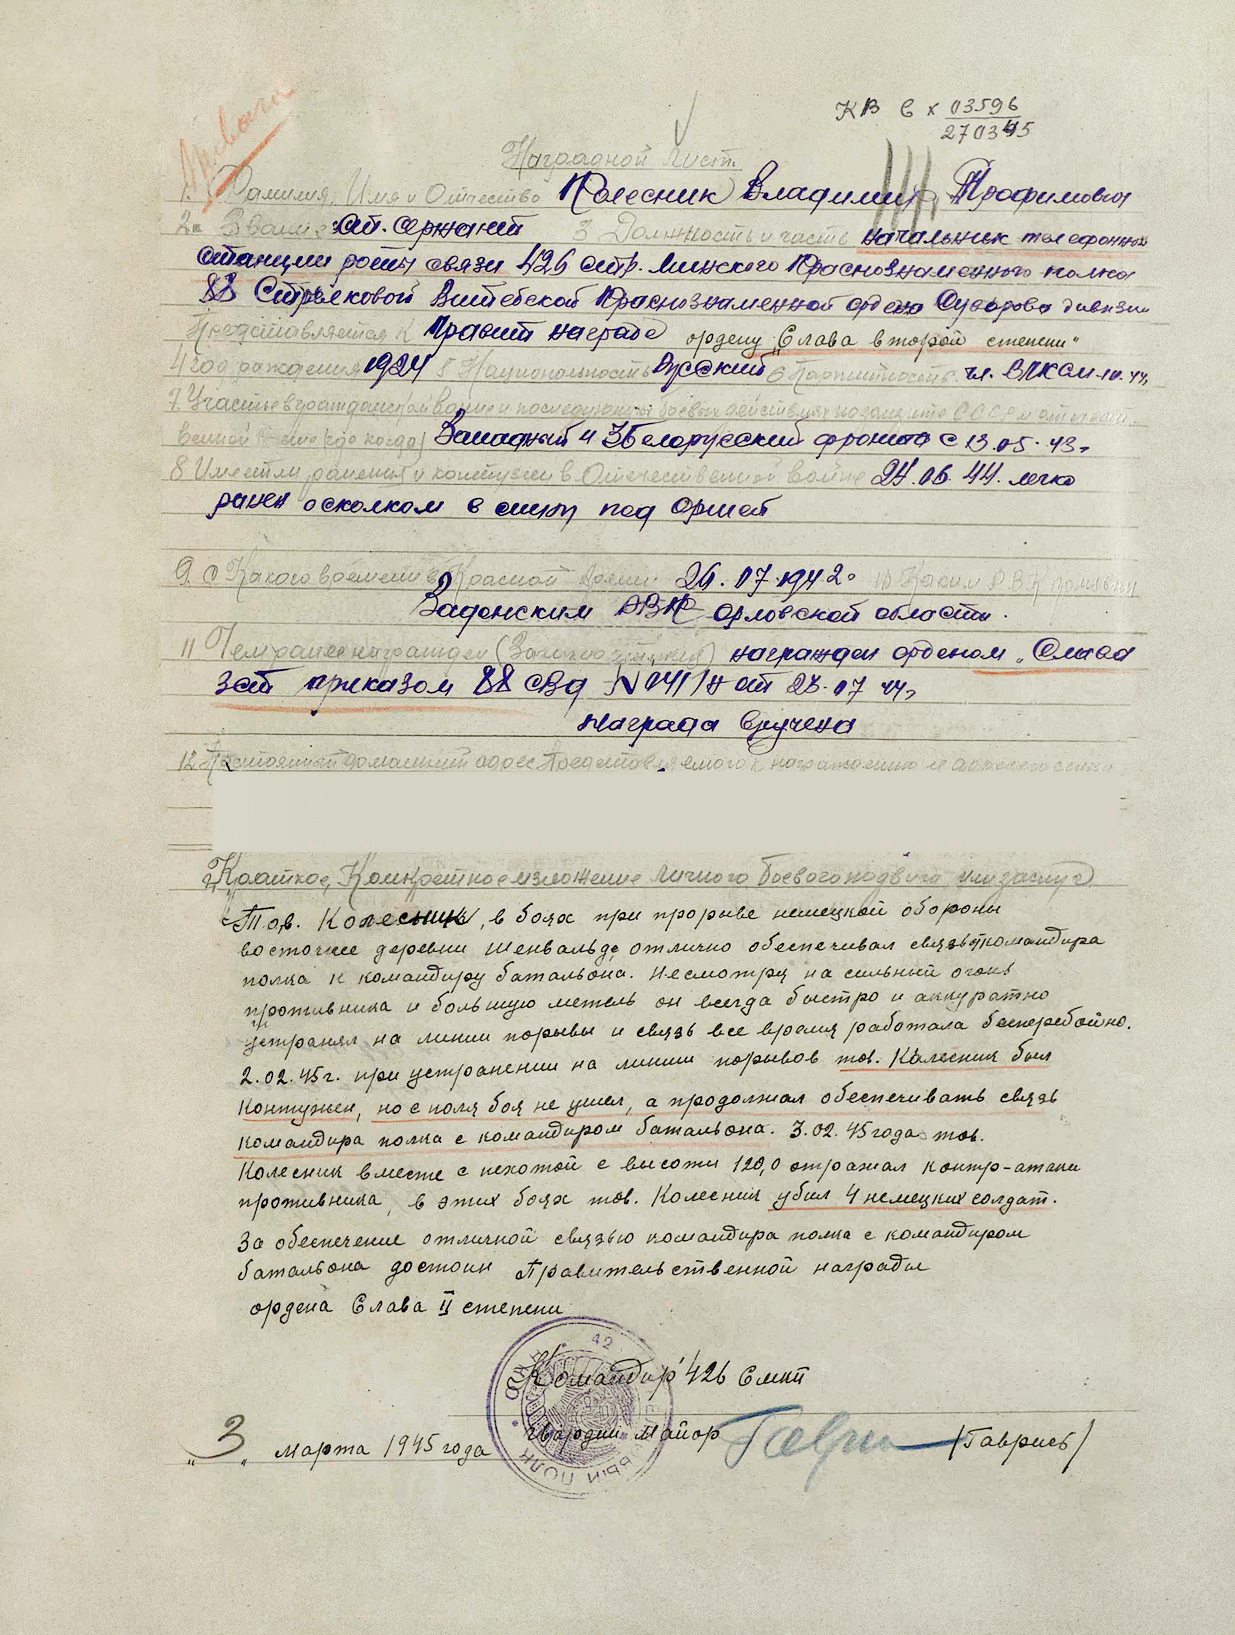 КВ С х 03596
270345
Наградной Лист.
1. Фамилия, Имя и Отчество Колесник Владимир Трофимович
2. Звание ст. сержант 3 Должность и часть начальник телефонной
станции роты связи 426 стр. Минского Краснознаменного полка
88 Стрелковой Витебской Краснознаменной ордена Суворова дивизии
Представляется к Правит награде ордену „Слава второй степени"
4 Год рождения 1924 5 Национальность Русский 6 Партийность чл. ВЛКСМ
7. Участие в гражданской войне и последующих боевых действиях по защите СССР и отечест
венной войне (где когда) Западный и 3 Белорусский фронта с 13.05.43г
8 Имеет ли ранения и контузии в Отечественной войне 24.06.44. легко
ранен осколком в спину под Оршей
9. С Какого времени в Красной Армии 26.07.1942г 10 Каким РВК призван
Задонским РВК Орловской области.
11 Чем ранее награжден (За какие отличия) награжден орденом „Слава
3ст приказом 88 сд №041/н от 23.07.44г
Награда вручена
12 Постоянный домашний адрес Представляемого к награждению и адрес его семьи
Краткое, Конкретное изложение личного боевого подвига или заслуг
Тов. Колесник, в боях при прорыве немецкой обороны
восточнее деревни Шенвальде отлично обеспечивал связь командира
полка к командиру батальона. Несмотря на сильный огонь
противника и большую метель он всегда быстро и аккуратно
устранял на линии порывы и связь все время работала бесперебойно.
2.02.45г. при устранении на линии порывов тов. Колесник был
Контужен, но с поля боя не ушел, а продолжал обеспечивать связь
командира полка с командиром батальона. 3.02.45 года тов.
Колесник вместе с пехотой с высоты 120,0 отражал контр-атаки
противника, в этих боях тов. Колесник убил 4 немецких солдат.
За обеспечение отличной связью командира полка с командиром
батальона достоин Правительственной награды
ордена Слава II степени
Командир 426 Смкп
гвардии Майор Гаврись /Гаврись/
„3" марта 1945 года